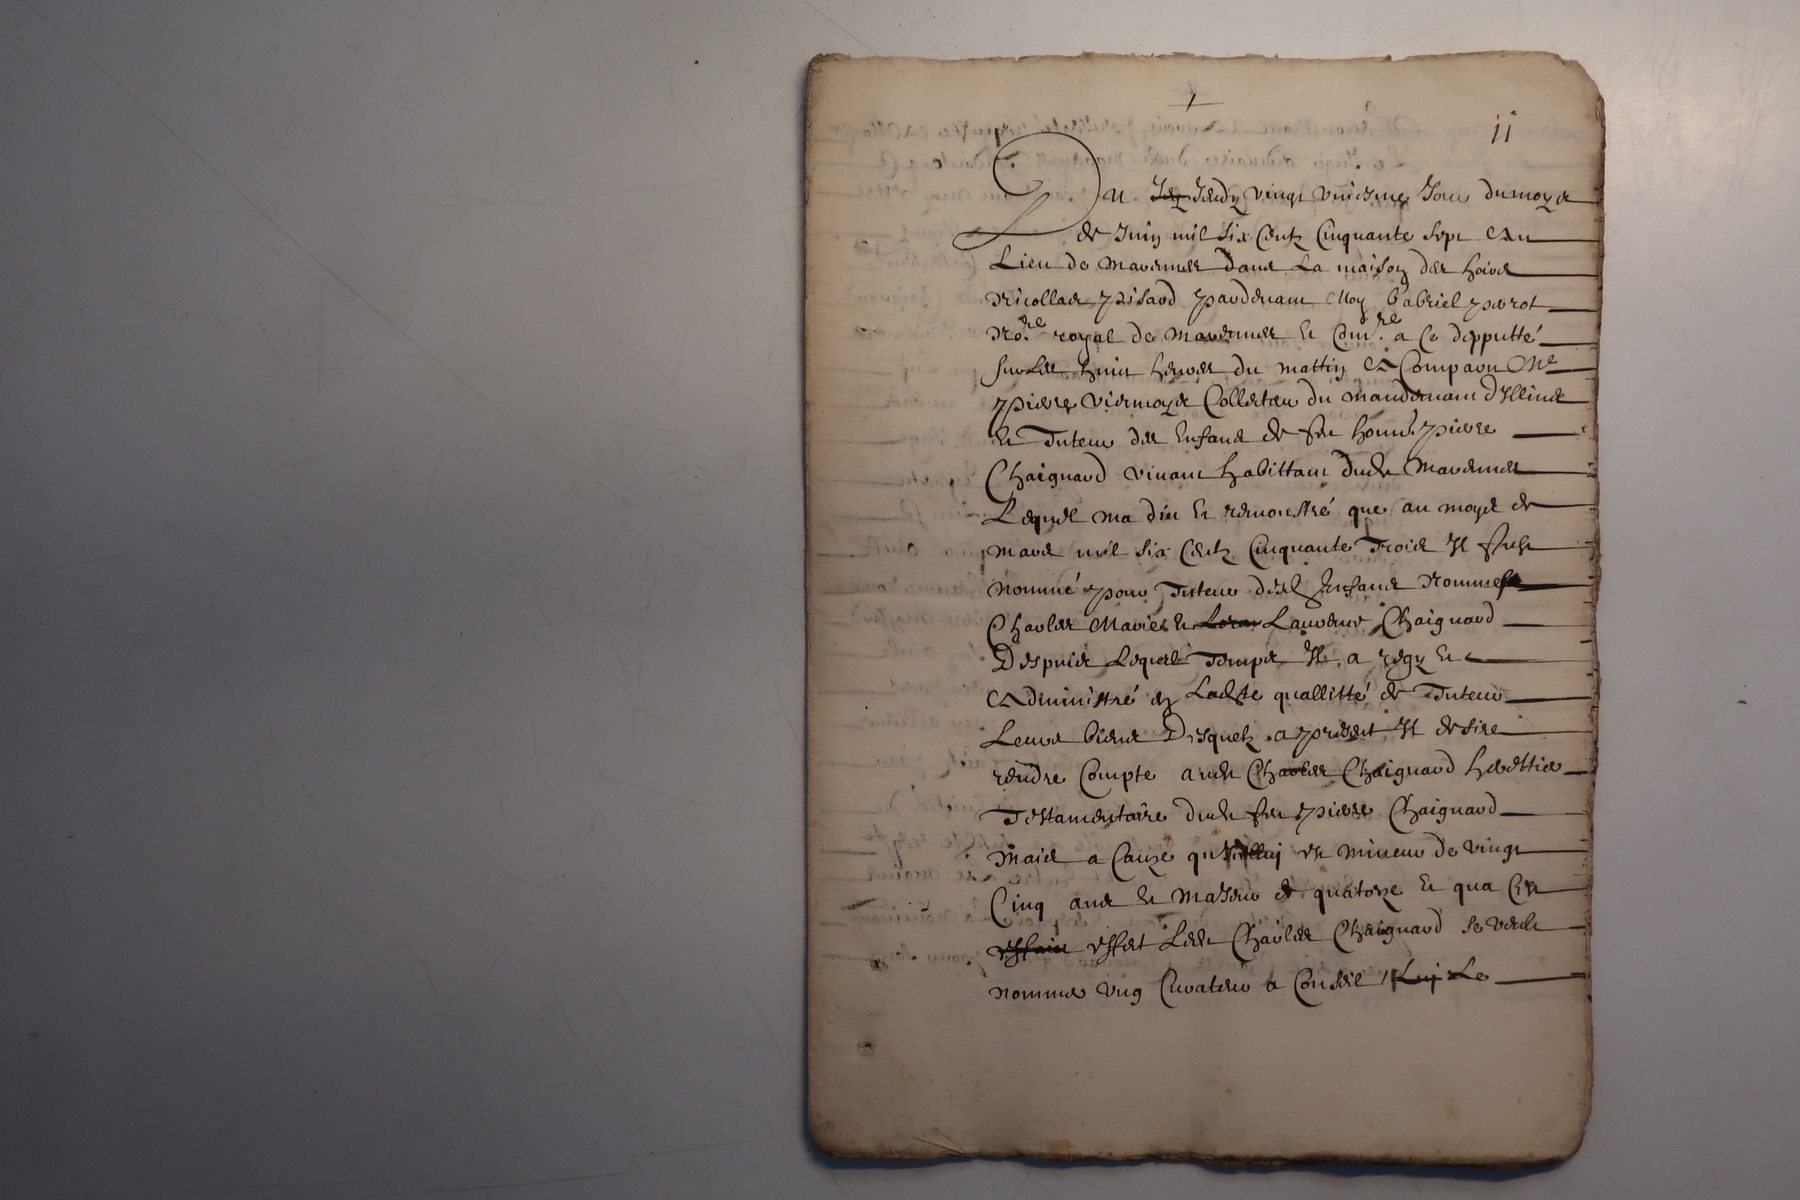 ii
Du Jeudy vingt huictiesme Jour du moys
de Juin mil six Centz Cinquante sept Au
Lieu de Marennes dans La maison des hoirs
Nicollas pisard pardevant Moy Gabriel perot
No.re royal de Marennes et Com.re a Ce depputté
sur Les huict heures du mattin A Comparu Me
pierre Viermoys Collecteur du mandement d'Illins
et Tuteur des Enfans de feu hon.e pierre
Chaignard vivant habittant dudt Marennes
Lequel ma dict et remonstré que au moys de
mars mil six Centz Cinquante Trois Il fust
nommé pour Tuteur desd Enfans Nommes
Charles Marie et Laurence Chaignard
Despuis Lequel Temps Il a regy et
Administré en Ladte quallitté de Tuteur
Leurs biens Desquelz a present Il desire
rendre Compte audt Charles Chaignard herettier
Testamentaire dudt feu pierre Chaignard
Mais a Cause qu'il est mineur de vingt
Cinq ans et Majeur de quatorze et qua Cest
effect Ledt Charles Chaignard se veult
nommer ung Curateur a Conseil Le